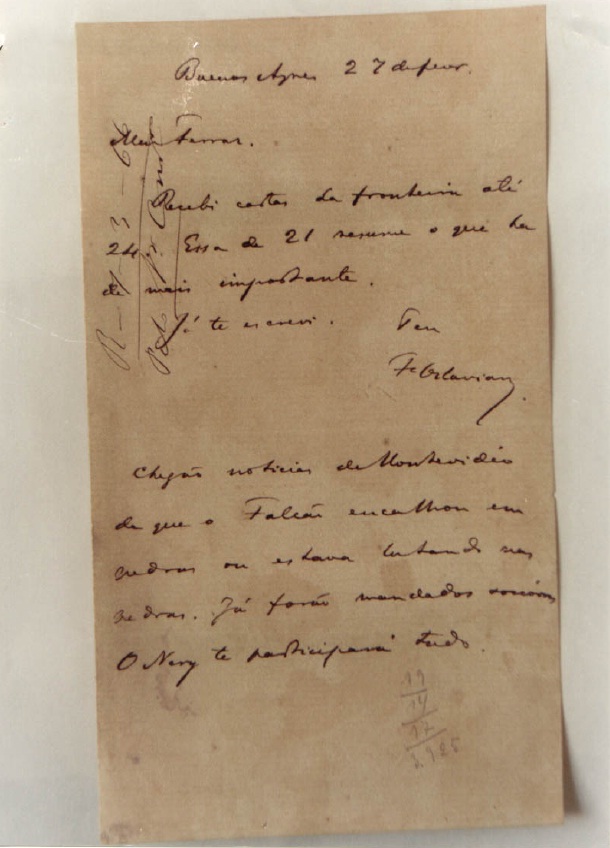 Buenos Ayres 27 de fever.
Meu Ferraz.
Recebi cartas da fronteira até
24. Essa de 21 resume o que ha
de mais importante.
Já te escrevi. Teu
F. Octaviano
Chegão noticias de Montevidéo
de que o Falcão encalhou em
pedras ou estava lutando nas
pedras. Já forão mandados soccorros
O Nery te participará tudo.
19
14
12